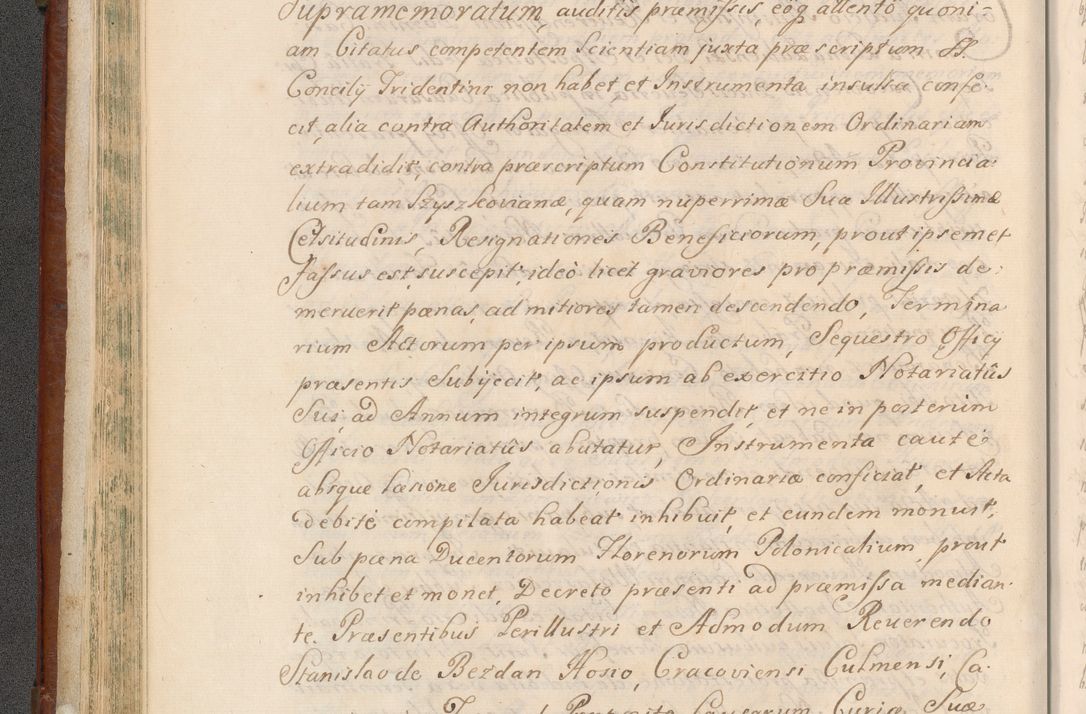 Supramemoratum, auditis præmissis, eoq͂ allento quoni=
am Citatus competentem Scientiam juxta præscriptum SS.
Concilij Tridentini non habet, et Instrumenta insulsa confe-
cit, alia contra Authoritatem et Jurisdictionem Ordinariam
extradidit, contra præscriptum Constitutionum Provincia-
lium tam Szyszkovianæ, quam nuperrimæ Suæ Illustrissimæ
Celsitudinis, Resignationes Beneficiorum, prout ipsemet
fassus est, suscepit, ideò licet graviores pro præmissis de-
meruerit pœnas, ad mitiores tamen descendendo, Termina
rium Actorum per ipsum productum, Sequestro Officij
præsentis Subijecit, ac ipsum ab exercitio Notariatûs
Sui, ad Annum integrum suspendit, et ne in posterum
Officio Notariatûs abutatur, Instrumenta cautè
absque læsione Jurisdictionis Ordinariæ conficiat, et Acta
debitè compilata habeat inhibuit, et eundem monuit,
Sub pœna Ducentorum Florenorum Polonicalium, prout
inhibet et monet, Decreto præsenti ad præmissa median-
te. Præsentibus Perillustri et Admodum Reverendo
Stanislao de Bezdan Hosio, Cracoviensi, Culmensi, Ca-
Causarum Curiæ Suæ